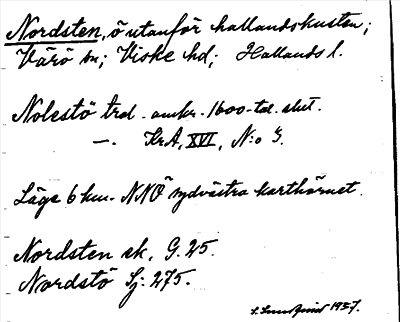 Nordsten, ö utanför hallandskusten;
Värö sn; Viske hd; Hallands l.
Nolestö trol. omkr. 1600-tal. slut.
—. KrA, XVI, N:o 3.
Läge 6 km. NNÖ sydvästra karthörnet.
Nordsten ek, G. 25.
Nordstö Sj: 275.
1937.